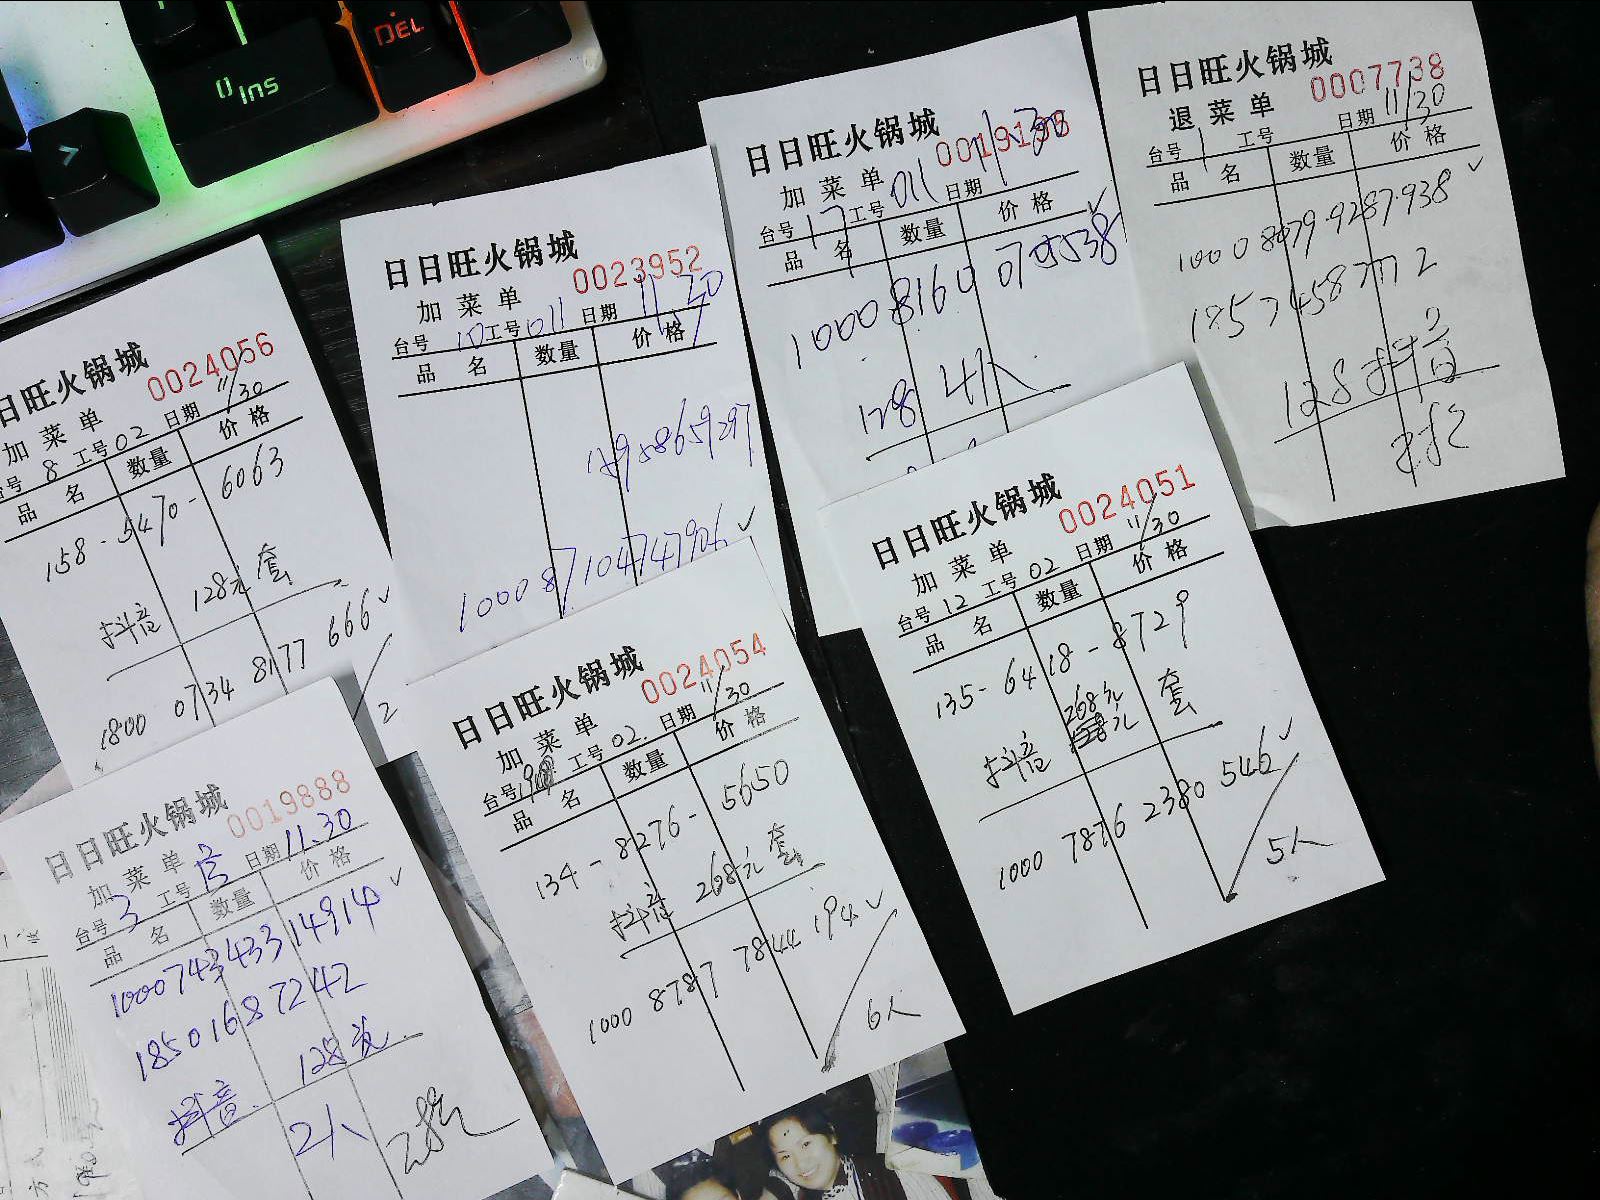 0 Ins
DEL
日日旺火锅城
0024056
加菜单
台号 8 工号 02 日期 11/30
品名 数量 价格
158-5470-6063
抖音 128元 套
1800 0734 8177 666 ✓
2
日日旺火锅城
0023952
加菜单
台号 10 工号 011 日期 11.30
品名 数量 价格
100087104747906 ✓
日日旺火锅城
0019195
加菜单
台号 17 工号 011 日期 11.30
品名 数量 价格
128 4人
日日旺火锅城
0007738
退菜单
台号 1 工号 日期 11/30
品名 数量 价格
18574587772
128抖音
日日旺火锅城
0019888
加菜单
台号 3 工号 日期 11.30
品名 数量 价格
100074343314914 ✓
18501687242
抖音 128
2人
日日旺火锅城
0024054
加菜单
台号 工号 02. 日期 11/30
品名 数量 价格
134-8276-5650
抖音 268元 套
1000 8787 7844 194 ✓
6人
日日旺火锅城
0024051
加菜单
台号 12 工号 02 日期 11/30
品名 数量 价格
135-6418-8729
抖音 268元 套
1000 7876 2380 546 ✓
5人
方式